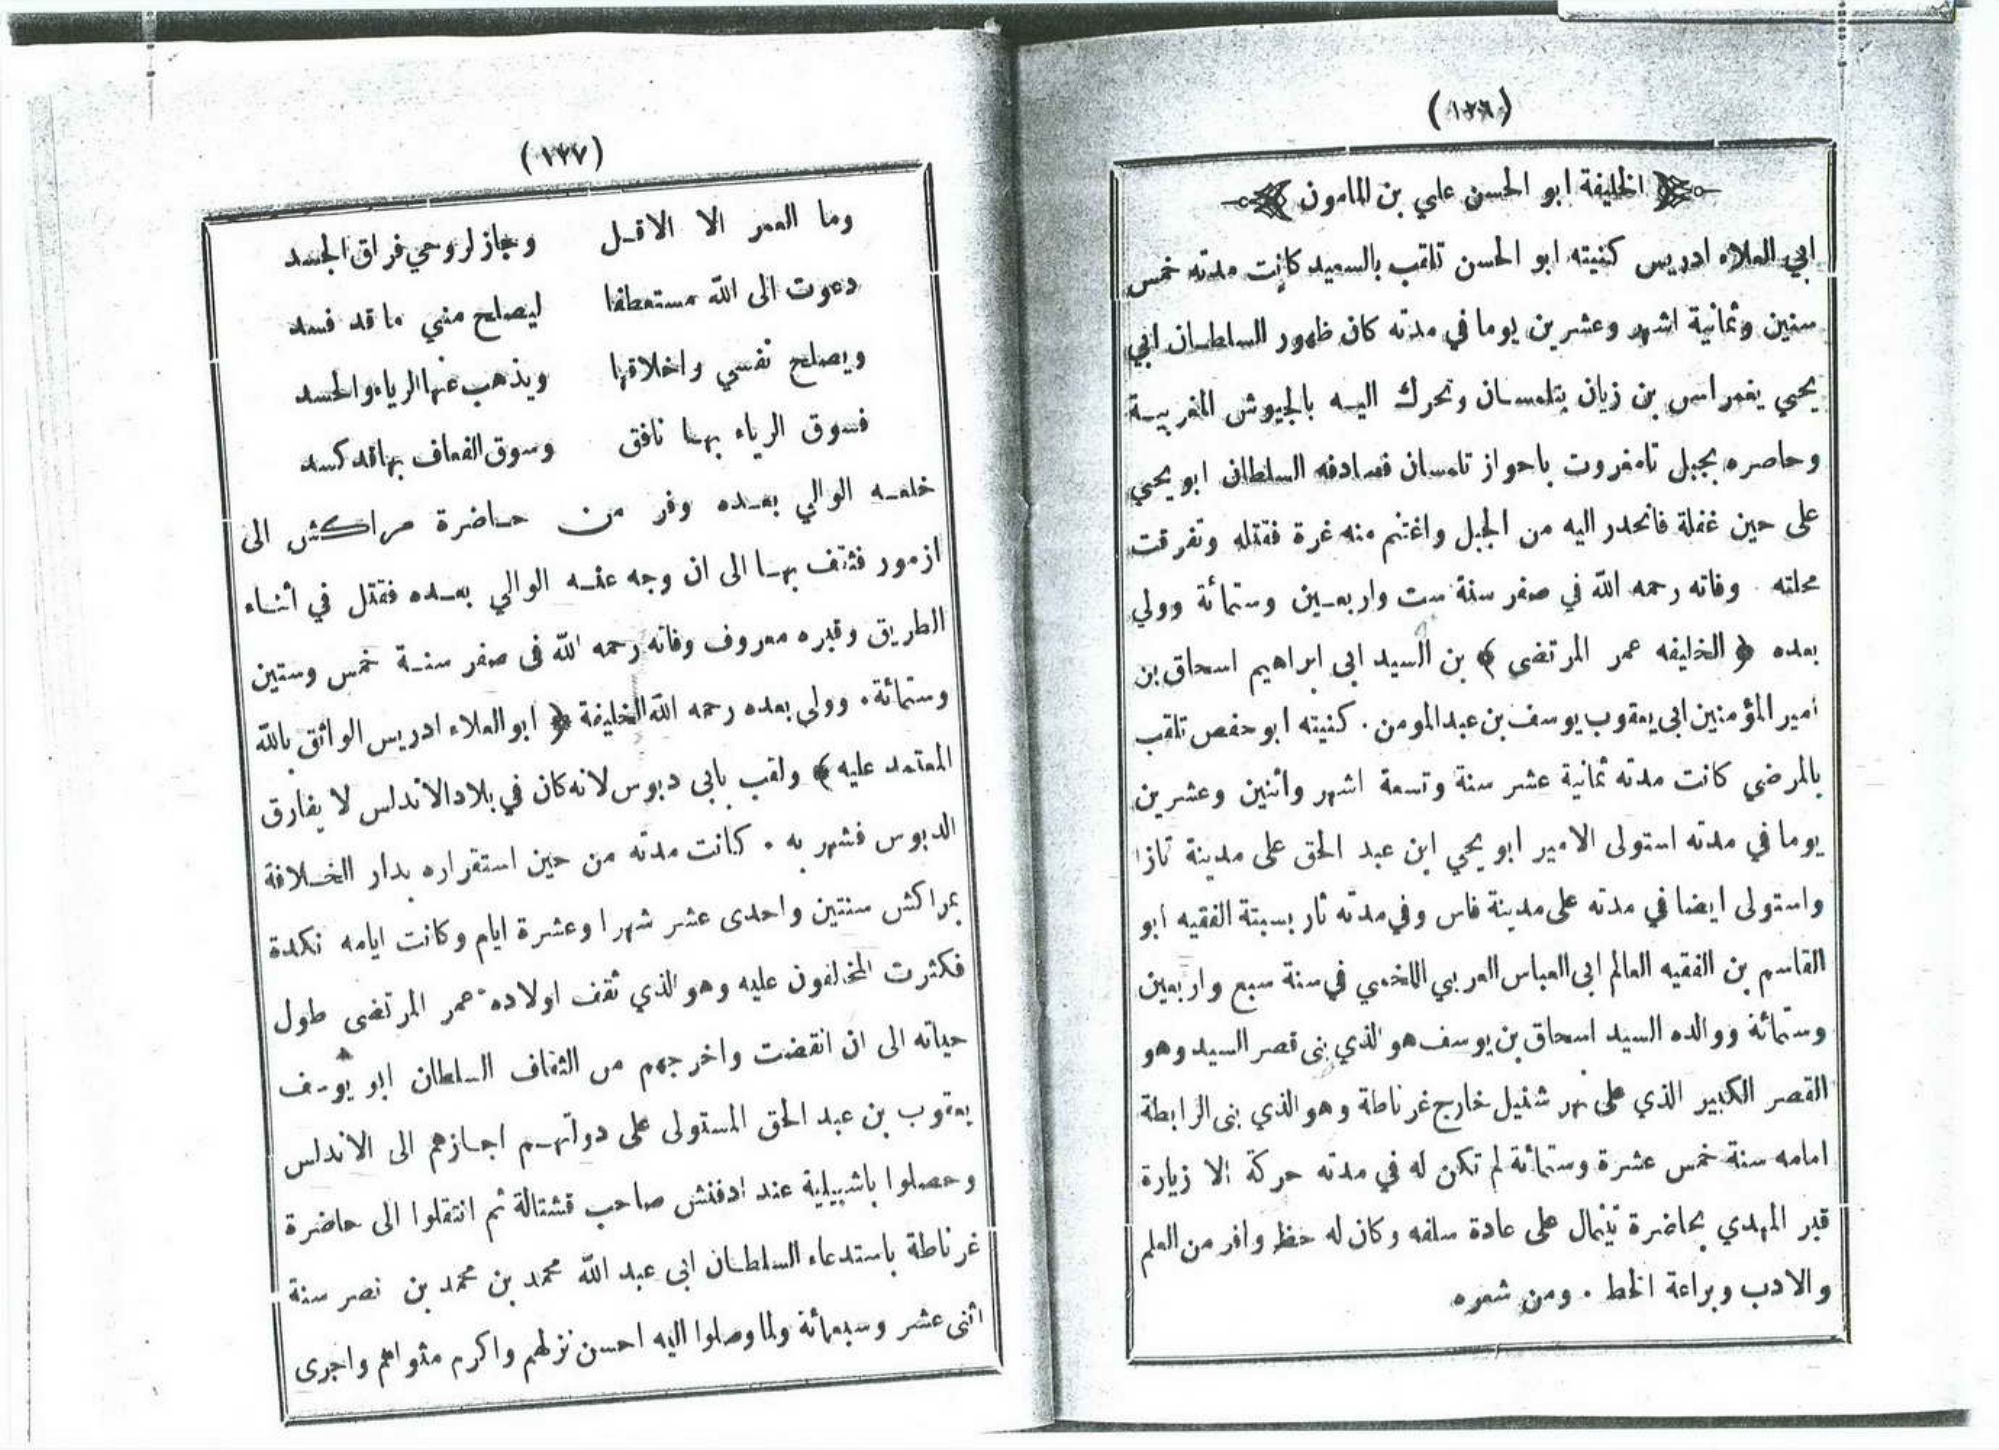 (١٢٦)
الخليفة ابو الحسن علي بن المامون
ابي العلاء ادريس كنيته ابو الحسن تلقب بالسعيد كانت مدته خمس
سنين وثمانية اشهر وعشرين يوما في مدته كان ظهور السلطان ابي
يحيي يغمراسن بن زيان بتلمسان وتحرك اليه بالجيوش المغربية
وحاصره بجبل تامغروت باحواز تلمسان فصادفه السلطان ابو يحيي
على حين غفلة فانحدر اليه من الجبل واغتنم منه غرة فقتله وتفرقت
محلته وفاته رحمه الله في صفر سنة ست واربعين وستمائة وولي
بعده ﴿ الخليفه عمر المرتضى ﴾ بن السيد ابى ابراهيم اسحاق بن
امير المؤمنين ابي يعقوب يوسف بن عبد المومن . كنيته ابو حفص تلقب
بالمرضي كانت مدته ثمانية عشر سنة وتسعة اشهر واثنين وعشرين
يوما في مدته استولى الامير ابو يحيي ابن عبد الحق على مدينة تازا
واستولى ايضا في مدته على مدينة فاس وفي مدته ثار بسبتة الفقيه ابو
القاسم بن الفقيه العالم ابى العباس العربي اللخمي في سنة سبع واربعين
وستمائة ووالده السيد اسحاق بن يوسف هو الذي بنى قصر السيد وهو
القصر الكبير الذي على نهر شنيل خارج غرناطة وهو الذي بنى الرابطة
امامه سنة خمس عشرة وستمائة لم تكن له في مدته حركة الا زيارة
قبر المهدي بحاضرة تينمال على عادة سلفه وكان له حظ وافر من العلم
والادب وبراعة الخط . ومن شعره
(١٢٧)
وما العمر الا الاقل وجاز لروحي فراق الجسد
دعوت الى الله مستعطفا ليصلح مني ما قد فسد
ويصلح نفسي واخلاقها ويذهب عنها الرياء والحسد
فسوق الرياء بها نافق وسوق العفاف بها قد كسد
خلعه الوالي بعده وفر من حاضرة مراكش الى
ازمور فثقف بها الى ان وجه عنه الوالي بعده فقتل في أثناء
الطريق وقبره معروف وفاته رحمه الله فى صفر سنة خمس وستين
وستمائة . وولي بعده رحمه الله الخليفة ﴿ ابو العلاء ادريس الواثق بالله
المعتمد عليه ﴾ ولقب بابى دبوس لانه كان في بلاد الاندلس لا يفارق
الدبوس فشهر به . كانت مدته من حين استقراره بدار الخلافة
بمراكش سنتين واحدى عشر شهرا وعشرة ايام وكانت ايامه نكدة
فكثرت المخالفون عليه وهو الذي ثقف اولاده عمر المرتضى طول
حياته الى ان انقضت واخرجهم من الثقاف السلطان ابو يوسف
يعقوب بن عبد الحق المستولى على دولتهم اجازهم الى الاندلس
وحصلوا باشبيلية عند ادفنش صاحب قشتالة ثم انتقلوا الى حاضرة
غرناطة باستدعاء السلطان ابى عبد الله محمد بن محمد بن نصر سنة
اثنى عشر وسبعمائة ولما وصلوا اليه احسن نزلهم واكرم مثواهم واجرى